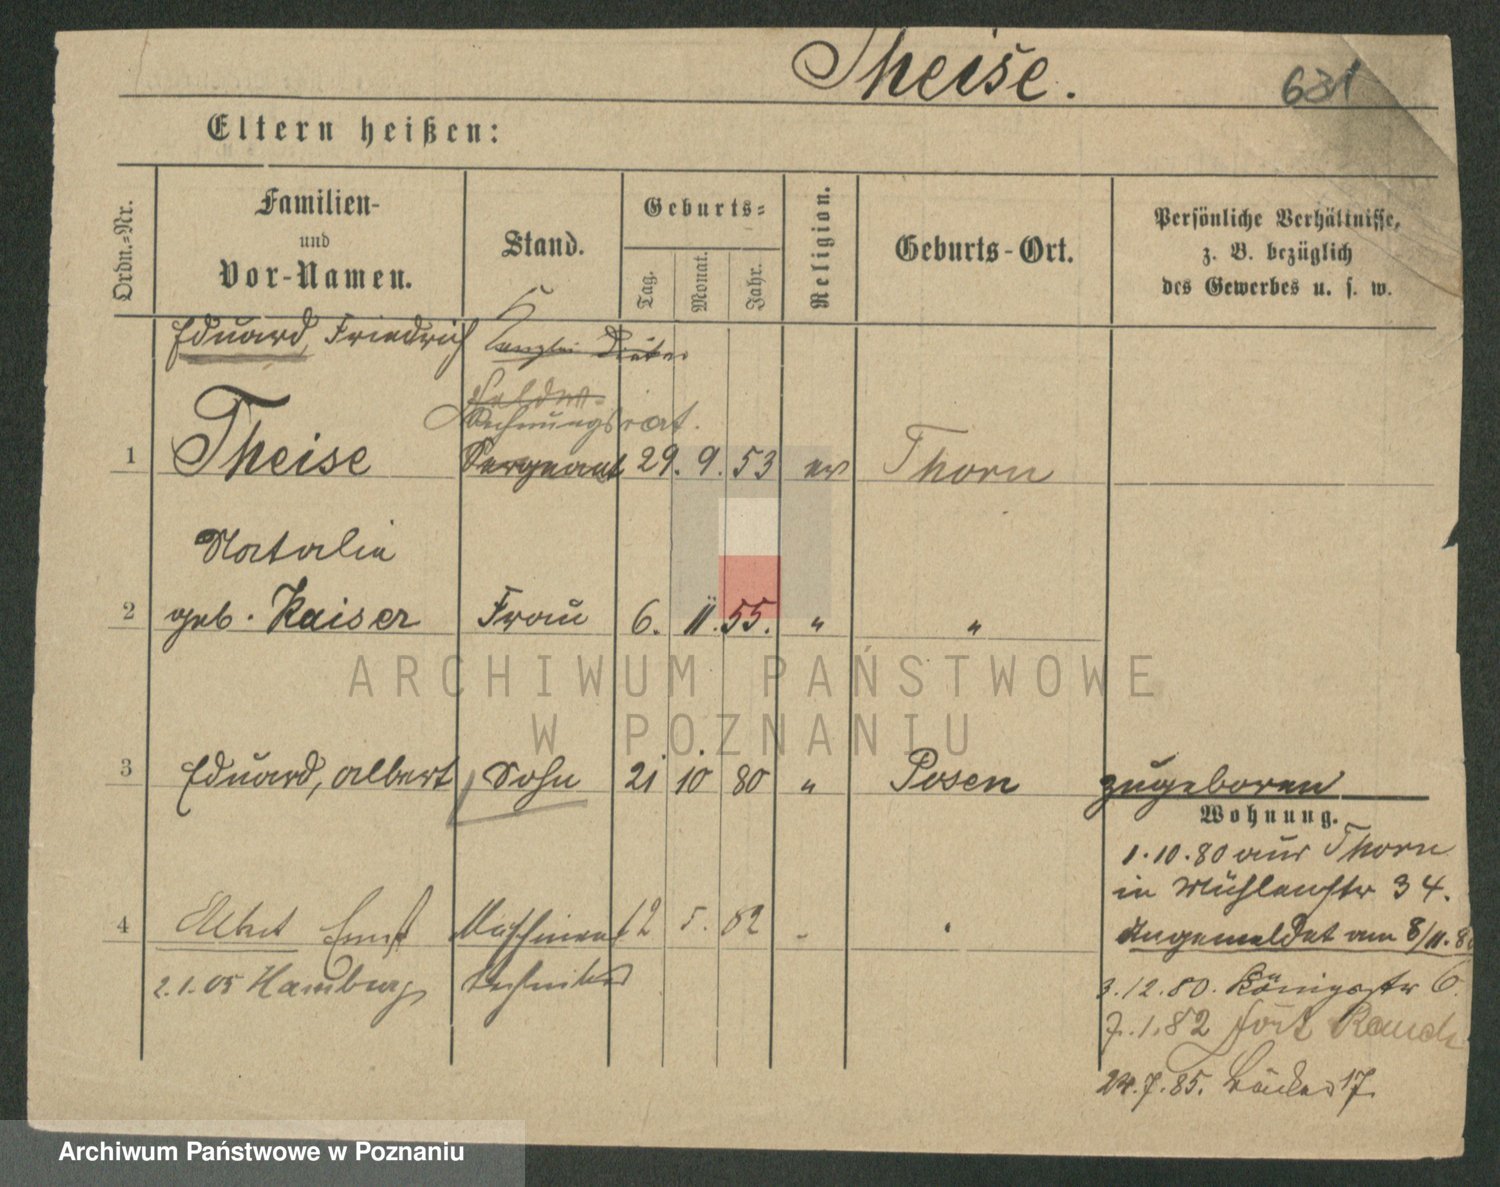 Theise.
631
Eltern heißen:
Ordn.-Nr.
Familien-
und
Vor-Namen.
Stand.
Geburts-
Tag.
Monat.
Jahr.
Religion.
Geburts-Ort.
Persönliche Verhältnisse,
z. B. bezüglich
des Gewerbes u. s. w.
Eduard, Friedrich Kanzlei Diätar
Rechnungsrat.
1 Theise Sergeant 29. 9. 53 ev Thorn
Natalie
2 geb. Kaiser Frau 6. 11. 55. " "
ARCHIWUM PAŃSTWOWE
W POZNANIU
3 Eduard, Albert Sohn 21 10 80 " Posen zugeboren
Wohnung.
1.10.80 aus Thorn
in Mühlenstr 34.
4 Albert Ernst Maschinen 12 5. 82
Angemeldet am 8/11.80
2.1.05 Hamburg Techniker
3.12.80. Königsstr 6.
7.1.82 Fort Rauch
24.7.85. Bäcker 17.
Archiwum Państwowe w Poznaniu